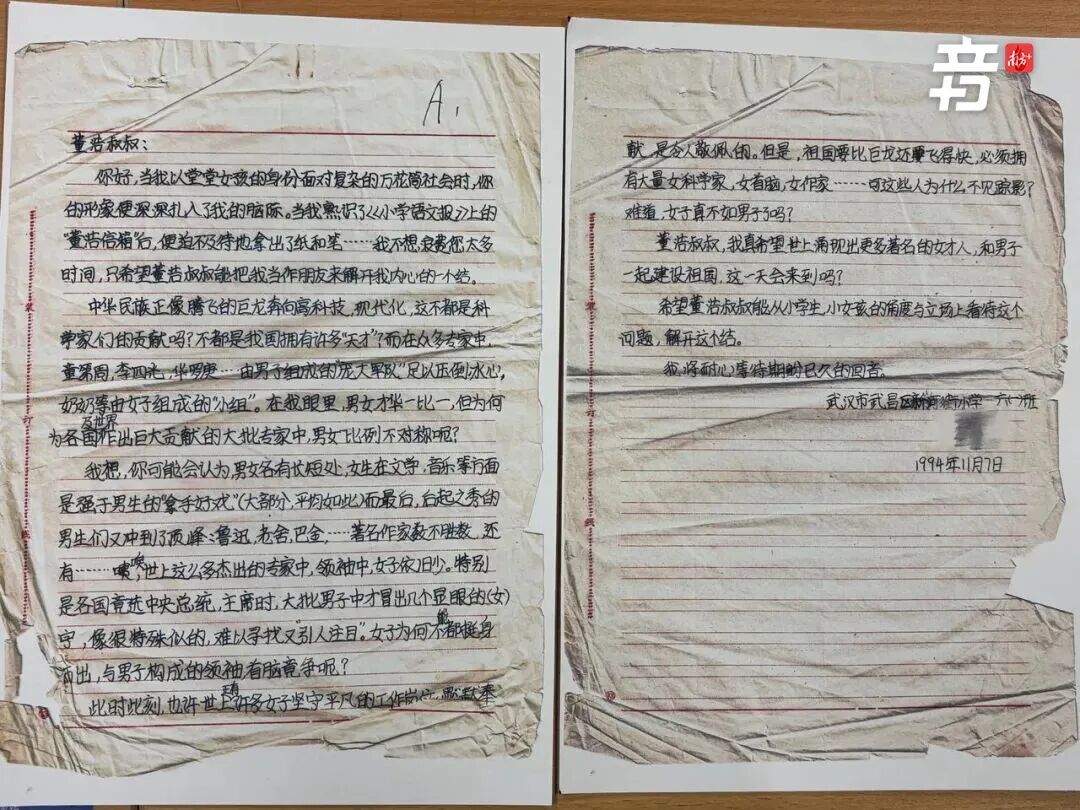 A.
董浩叔叔：
你好，当我以堂堂女孩的身份面对复杂的万花筒社会时，你
的形象便深深扎入了我的脑际。当我熟识了《小学语文报》上的
“董浩信箱”后，便迫不及待地拿出了纸和笔……我不想浪费您太多
时间，只希望董浩叔叔能把我当作朋友来解开我内心的一个结。
中华民族正像腾飞的巨龙奔向高科技，现代化，这不都是科
学家们的贡献吗？不都是我国拥有许多“天才”？而在众多专家中，
童第周，李四光，华罗庚……由男子组成的“庞大军队”足以压倒冰心
奶奶等由女子组成的“小组”。在我眼里，男女才华一比一，但为何
为各国及世界作出巨大贡献的大批专家中，男女比例不对称呢？
我想，你可能会认为男女各有长短处，女生在文学，音乐等方面
是强于男生的“拿手好戏”（大部分，平均如此）而最后，后起之秀的
男生们又冲到了顶峰：鲁迅，老舍，巴金，……著名作家数不胜数，还
有……唉，世上这么多杰出的专家中，领袖中，女子依旧少。特别
是各国竞选中央总统，主席时，大批男子中才冒出几个显眼的（女）
字，像很特殊似的，难以寻找又“引人注目”。女子为何不能都挺身
而出，与男子构成的领袖首脑竞争呢？
此时此刻，也许世上有许多女子坚守平凡的工作岗位，默默奉
献，是令人敬佩的。但是，祖国要比巨龙还要飞得快，必须拥
有大量女科学家，女首脑，女作家……可这些人为什么不见踪影？
难道，女子真不如男子了吗？
董浩叔叔，我真希望世上涌现出更多著名的女才人，和男子
一起建设祖国，这一天会来到吗？
希望董浩叔叔能从小学生，小女孩的角度与立场上看待这个
问题，解开这个结。
我将耐心等待期盼已久的回音。
武汉市武昌区新河街小学 六（一）班
1994年11月7日
装
订
线
装
订
线
音
书
南方+